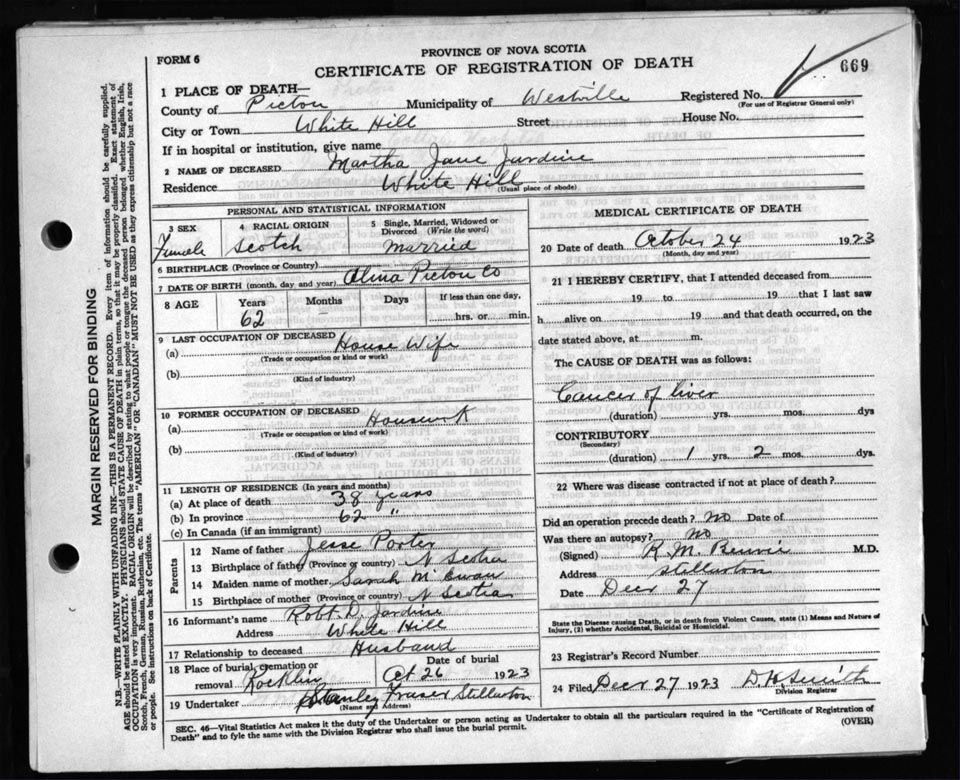 PROVINCE OF NOVA SCOTIA
FORM 6
CERTIFICATE OF REGISTRATION OF DEATH
669
1 PLACE OF DEATH—
County of Pictou Municipality of Westville Registered No.
(For use of Registrar General only)
City or Town White Hill Street House No.
If in hospital or institution, give name
2 NAME OF DECEASED Martha Jane Jardine
Residence White Hill
(Usual place of abode)
PERSONAL AND STATISTICAL INFORMATION
3 SEX 4 RACIAL ORIGIN 5 Single, Married, Widowed or Divorced (Write the word)
Female Scotch Married
6 BIRTHPLACE (Province or Country) Alma Pictou Co
7 DATE OF BIRTH (month, day and year)
8 AGE Years Months Days If less than one day,
62 – hrs. or min.
9 LAST OCCUPATION OF DECEASED
(a) House Wife
(Trade or occupation or kind or work)
(b)
(Kind of industry)
10 FORMER OCCUPATION OF DECEASED
(a) Housework
(Trade or occupation or kind or work)
(b)
(Kind of industry)
11 LENGTH OF RESIDENCE (In years and months)
(a) At place of death 38 years
(b) In province 62 "
(c) In Canada (if an immigrant)
Parents
12 Name of father Jesse Porter
13 Birthplace of father (Province or country) N Scotia
14 Maiden name of mother Sarah M. Ewan
15 Birthplace of mother (Province or country) N Scotia
16 Informant's name Robt. D. Jardine
Address White Hill
17 Relationship to deceased Husband
18 Place of burial, cremation or removal Rocklin Date of burial Oct 26 1923
19 Undertaker Stanley Fraser Stellarton
(Name and Address)
MEDICAL CERTIFICATE OF DEATH
20 Date of death October 24 1923
(Month, day and year)
21 I HEREBY CERTIFY, that I attended deceased from
19 to 19 that I last saw
h alive on 19 and that death occurred, on the
date stated above, at m.
The CAUSE OF DEATH was as follows:
Cancer of liver
(duration) yrs. mos. dys
CONTRIBUTORY
(Secondary)
(duration) 1 yrs 2 mos. dys.
22 Where was disease contracted if not at place of death?
Did an operation precede death? No Date of
Was there an autopsy? No
(Signed) R. M. Benvie M.D.
Address Stellarton
Date Decr 27
State the Disease causing Death, or in death from Violent Causes, state (1) Means and Nature of Injury, (2) whether Accidental, Suicidal or Homicidal.
23 Registrar's Record Number
24 Filed Decr 27 1923 D H Smith
Division Registrar
SEC. 46—Vital Statistics Act makes it the duty of the Undertaker or person acting as Undertaker to obtain all the particulars required in the "Certificate of Registration of
Death" and to fyle the same with the Division Registrar who shall issue the burial permit. (OVER)
MARGIN RESERVED FOR BINDING
N.B.—WRITE PLAINLY WITH UNFADING INK—THIS IS A PERMANENT RECORD. Every item of information should be carefully supplied.
AGE should be stated EXACTLY. PHYSICIANS should STATE CAUSE OF DEATH in plain terms, so that it may be properly classified. Exact statement of
OCCUPATION is very important. RACIAL ORIGIN will be described by stating to what people or tongue the deceased person belonged whether English, Irish,
Scotch, French, German, Russian, Ruthenian, etc. The terms "AMERICAN" OR "CANADIAN" MUST NOT BE USED as they express citizenship but not a race
or people. See instructions on back of Certificate.